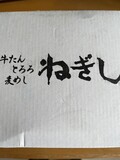 牛たん
とろろ
麦めし
ねぎし